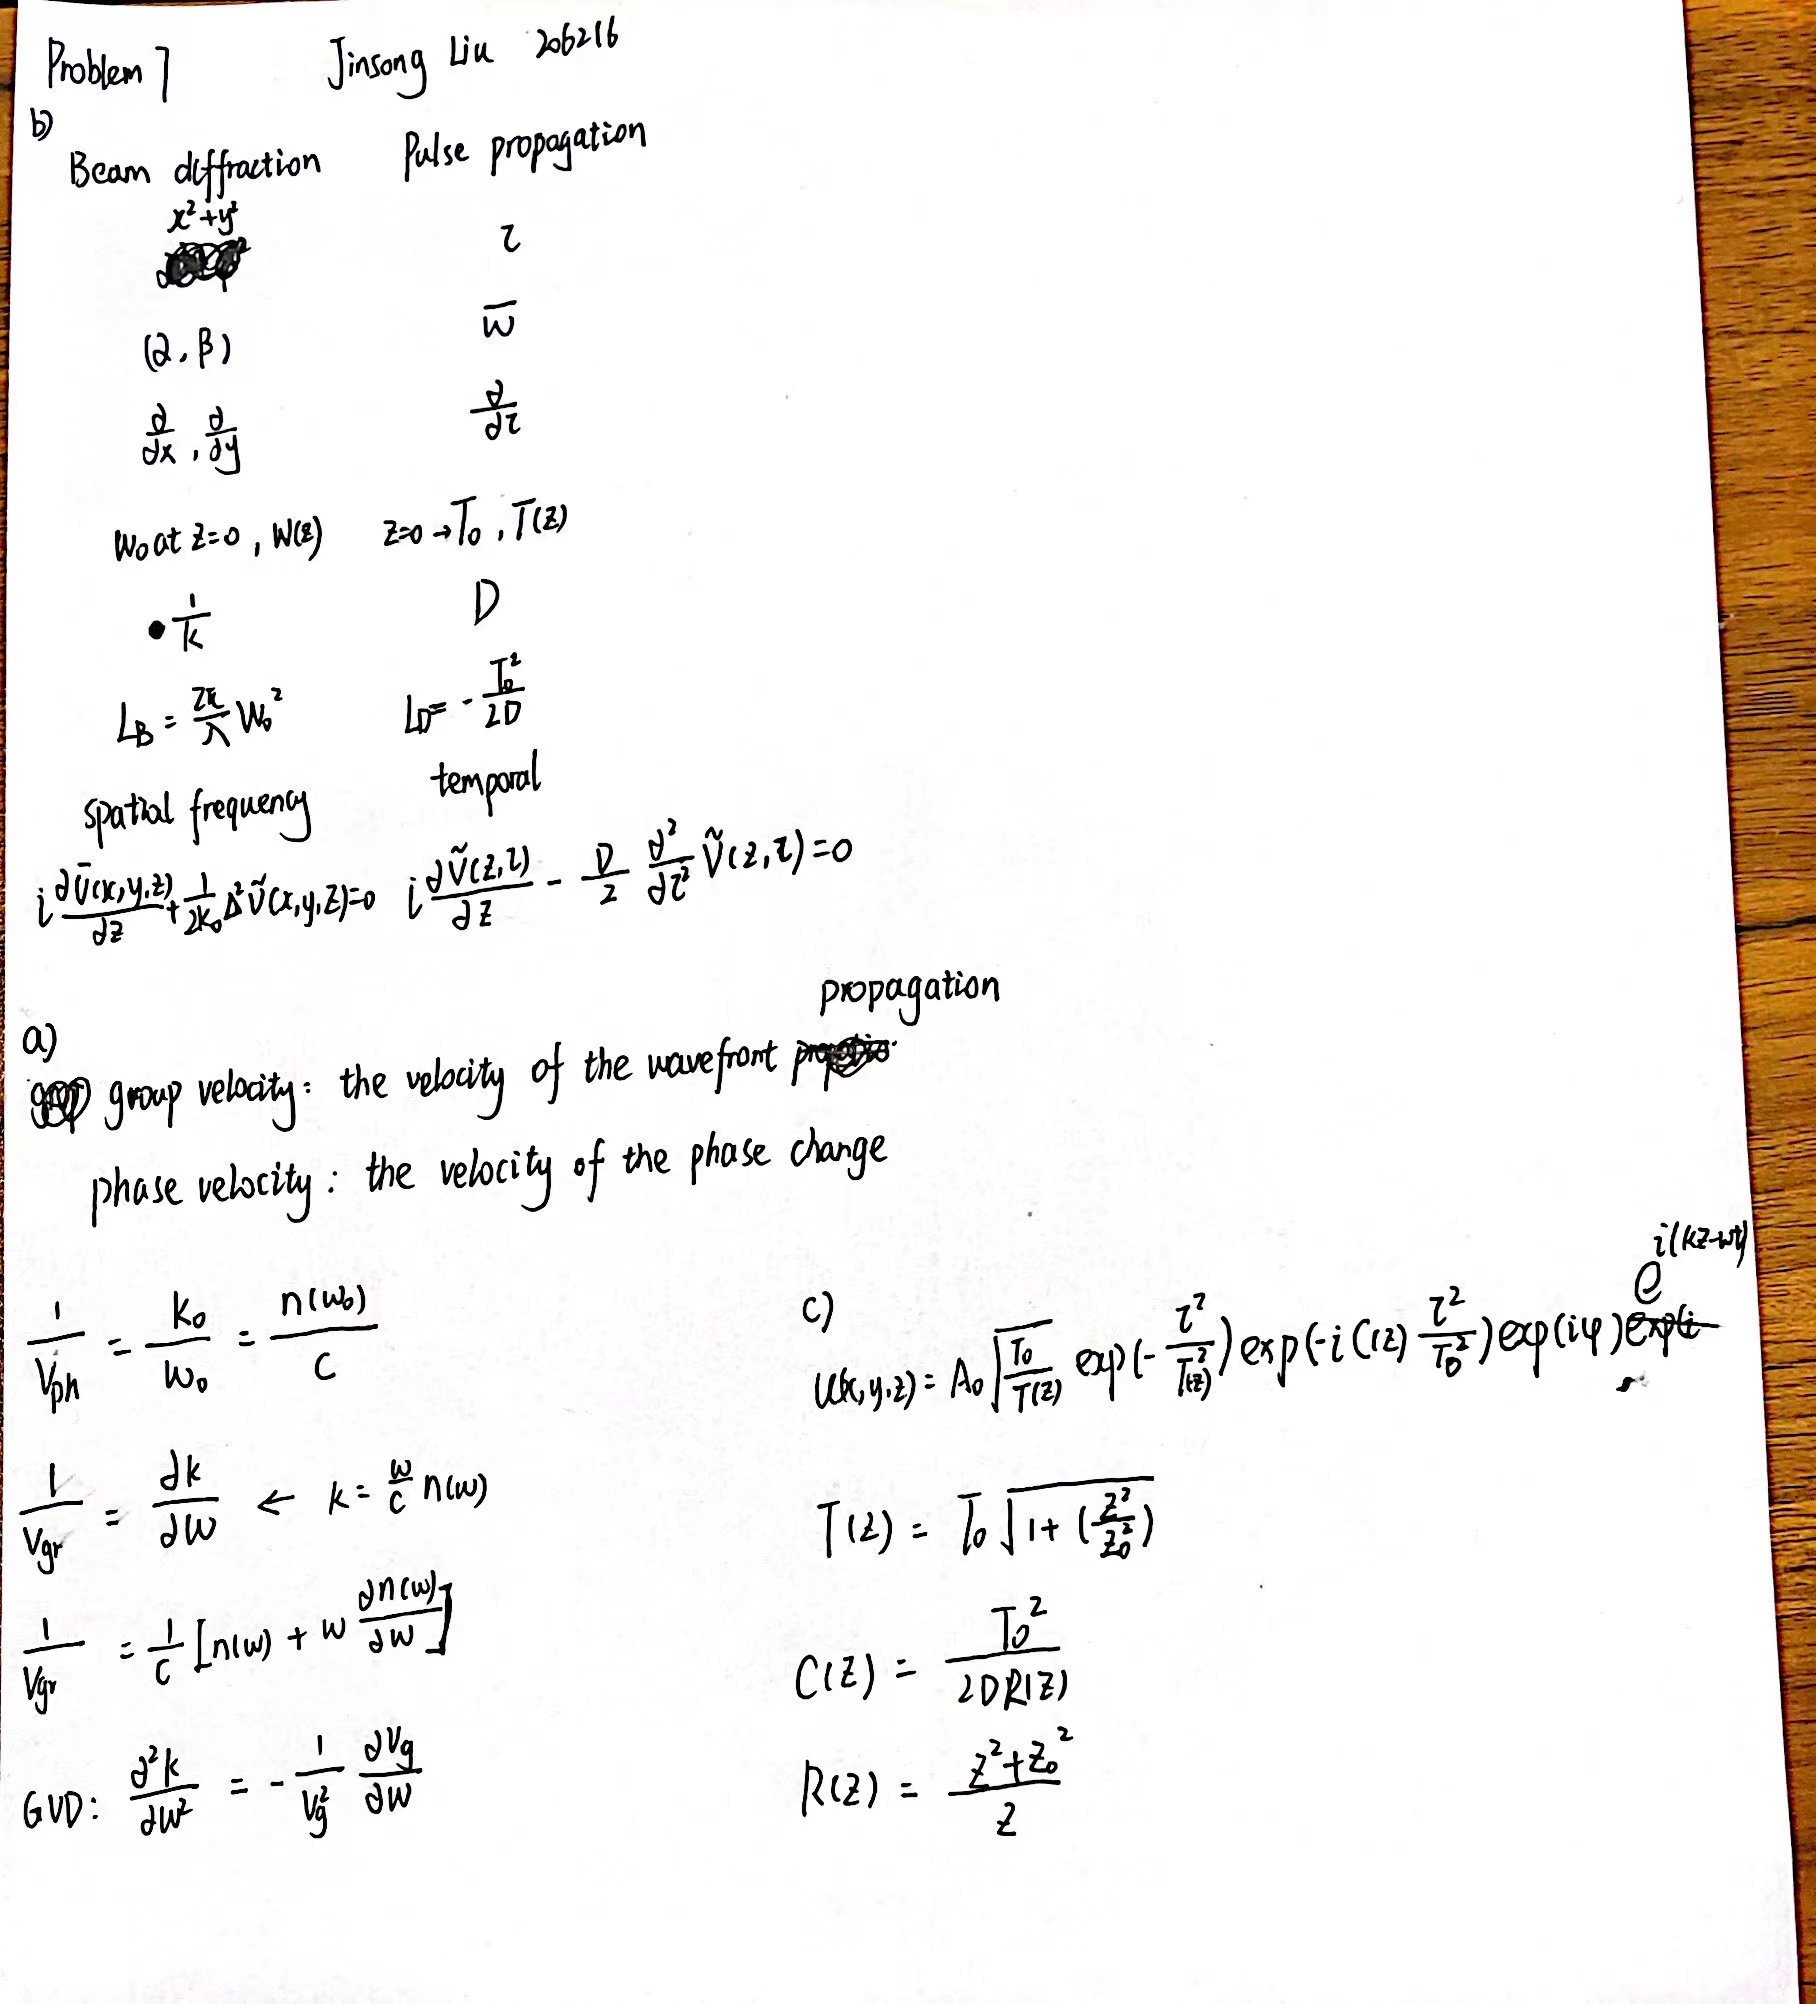 Problem 7 Jinsong Liu 206216
b)
Beam diffraction Pulse propagation
x²+y² τ
(α, β) ω̅
∂/∂x , ∂/∂y ∂/∂τ
W₀ at z=0 , W(z) z=0 → T₀ , T(z)
1/k D
L_B = 2π/λ W₀² L_D = - T₀²/2D
spatial frequency temporal
i ∂Ṽ(x,y,z)/∂z + 1/2k₀ Δ² Ṽ(x,y,z)=0 i ∂Ṽ(z,τ)/∂z - D/2 ∂²/∂τ² Ṽ(z,τ)=0
a)
propagation
group velocity: the velocity of the wavefront
phase velocity: the velocity of the phase change
1/V_ph = k₀/ω₀ = n(ω₀)/c
1/V_gr = ∂k/∂ω ← k = ω/c n(ω)
1/V_gr = 1/c [n(ω) + ω ∂n(ω)/∂ω]
GVD: ∂²k/∂ω² = - 1/V_g² ∂V_g/∂ω
c)
U(x,y,z) = A₀ √(T₀/T(z)) exp(- τ²/T²(z)) exp(-i C(z) τ²/T₀²) exp(iφ) e^i(kz-ωt)
T(z) = T₀ √(1 + (z²/z₀²))
C(z) = T₀²/2DR(z)
R(z) = z²+z₀²/z